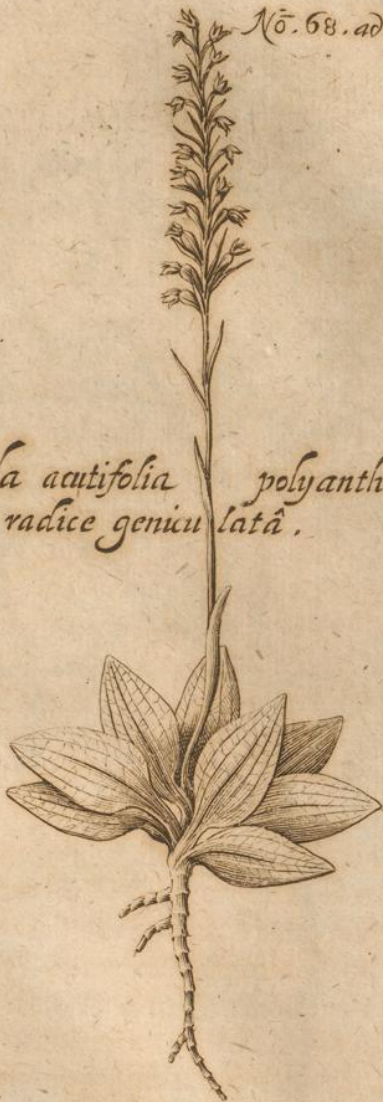 Nō. 68. ad
la acutifolia polyanth
radice geniculatâ.